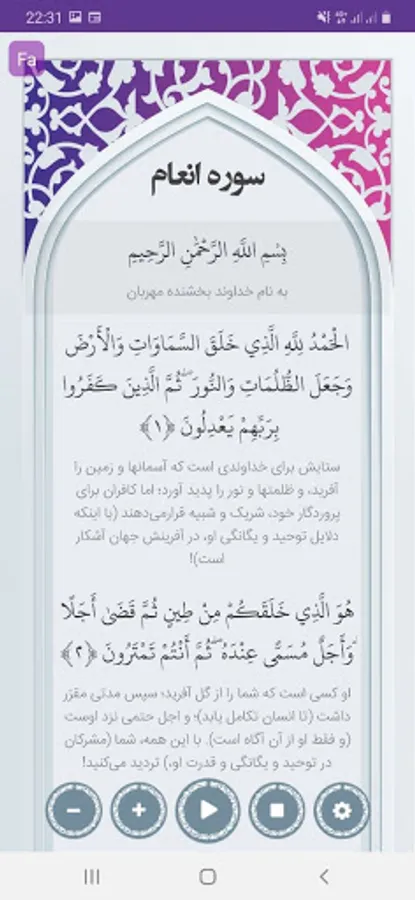 22:31
Fa
سوره انعام
بِسْمِ اللَّهِ الرَّحْمَٰنِ الرَّحِيمِ
به نام خداوند بخشنده مهربان
الْحَمْدُ لِلَّهِ الَّذِي خَلَقَ السَّمَاوَاتِ وَالْأَرْضَ
وَجَعَلَ الظُّلُمَاتِ وَالنُّورَ ۖ ثُمَّ الَّذِينَ كَفَرُوا
بِرَبِّهِمْ يَعْدِلُونَ ﴿۱﴾
ستایش برای خداوندی است که آسمانها و زمین را
آفرید، و ظلمتها و نور را پدید آورد؛ اما کافران برای
پروردگار خود، شریک و شبیه قرارمی‌دهند (با اینکه
دلایل توحید و یگانگی او، در آفرینش جهان آشکار
است)!
هُوَ الَّذِي خَلَقَكُمْ مِنْ طِينٍ ثُمَّ قَضَىٰ أَجَلًا
ۖ وَأَجَلٌ مُسَمًّى عِنْدَهُ ۖ ثُمَّ أَنْتُمْ تَمْتَرُونَ ﴿۲﴾
او کسی است که شما را از گل آفرید؛ سپس مدتی مقرّر
داشت (تا انسان تکامل یابد)؛ و اجل حتمی نزد اوست
(و فقط او از آن آگاه است). با این همه، شما (مشرکان
در توحید و یگانگی و قدرت او،) تردید می‌کنید!